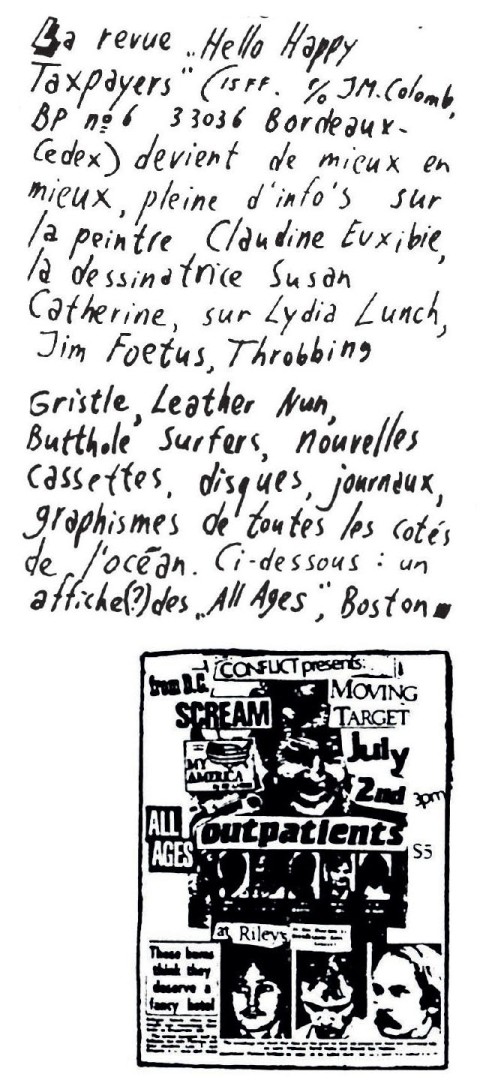 La revue „Hello Happy
Taxpayers" (15FF. c/o JM.Colomb,
BP nº 6 33036 Bordeaux-
Cedex) devient de mieux en
mieux, pleine d'info's sur
la peintre Claudine Euxibie,
la dessinatrice Susan
Catherine, sur Lydia Lunch,
Jim Foetus, Throbbing
Gristle, Leather Nun,
Butthole Surfers, nouvelles
cassettes, disques, journaux,
graphismes de toutes les cotés
de l'océan. Ci-dessous : un
affiche(?) des „All Ages", Boston
CONFLICT presents:
from D.C.
SCREAM
MOVING
TARGET
July
2nd 3pm
MY
AMERICA
ALL
AGES
outpatients
$5
at Riley's
These bums
think they
deserve a
fancy hotel